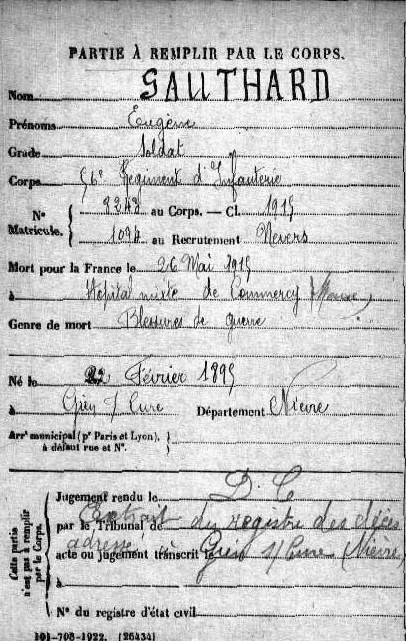 PARTIE À REMPLIR PAR LE CORPS.
Nom SAUTHARD
Prénoms Eugène
Grade Soldat
Corps 56e Régiment d'Infanterie
N° Matricule. { 8248 au Corps. — Cl. 1915
1094 au Recrutement Nevers
Mort pour la France le 26 Mai 1915
à Hôpital mixte de Commercy (Meuse)
Genre de mort Blessures de guerre
Né le 22 Février 1895
à Gien s/ Cure Département Nièvre
Arrt municipal (pr Paris et Lyon), à défaut rue et N°. }
Cette partie n'est pas à remplir par le Corps. {
Jugement rendu le D. C
par le Tribunal de Extrait du registre des décès
adressé
acte ou jugement transcrit le Gien s/ Cure (Nièvre)
à
N° du registre d'état civil
101-708-1922. [26434]